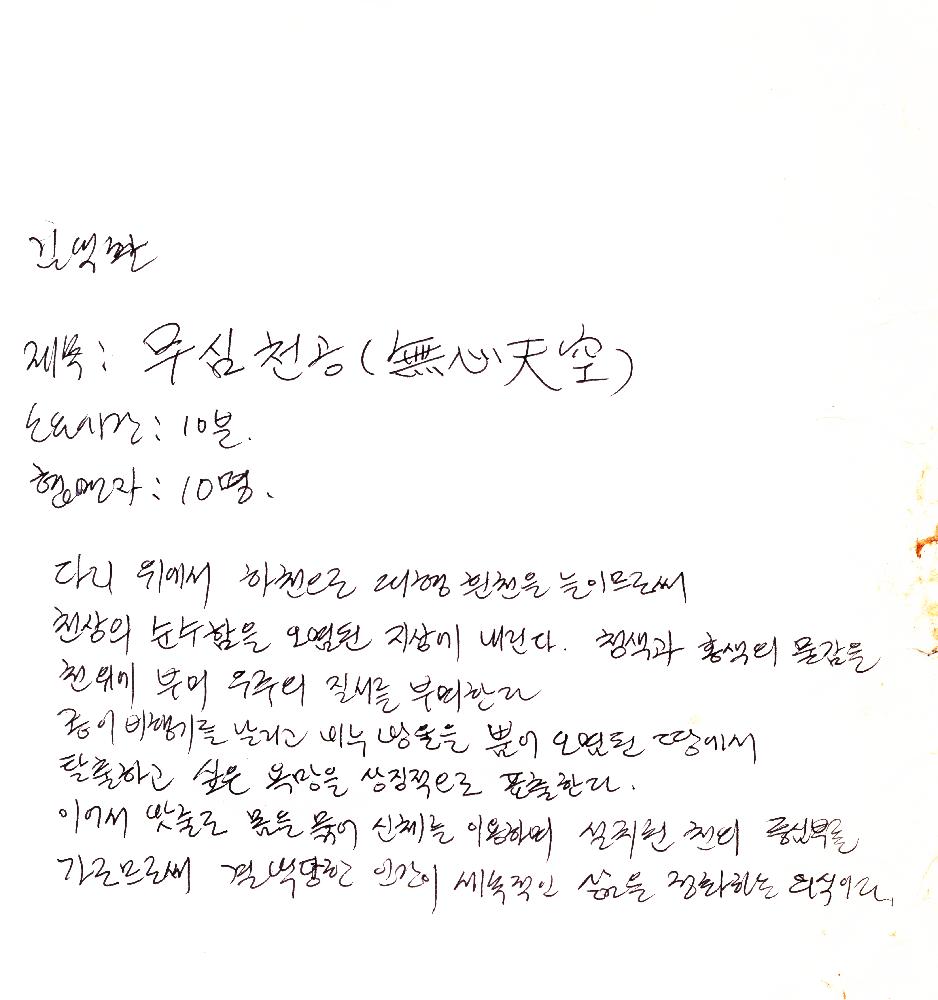 김백환
제목: 무심천공(無心天空)
소요시간: 10분.
참여자: 10명.
다리 위에서 하천으로 대형 흰천을 늘이므로써
천상의 순수함을 오염된 지상에 내린다. 청색과 홍색의 물감을
천위에 부어 우주의 질서를 부여한다
종이 비행기를 날리고 비누 방울을 뿜어 오염된 땅에서
탈출하고 싶은 욕망을 상징적으로 표출한다.
이어서 밧줄로 몸을 묶어 신체를 이용하여 설치된 천의 중심부를
가르므로써 결박당한 인간이 세속적인 삶을 정화하는 의식이다.